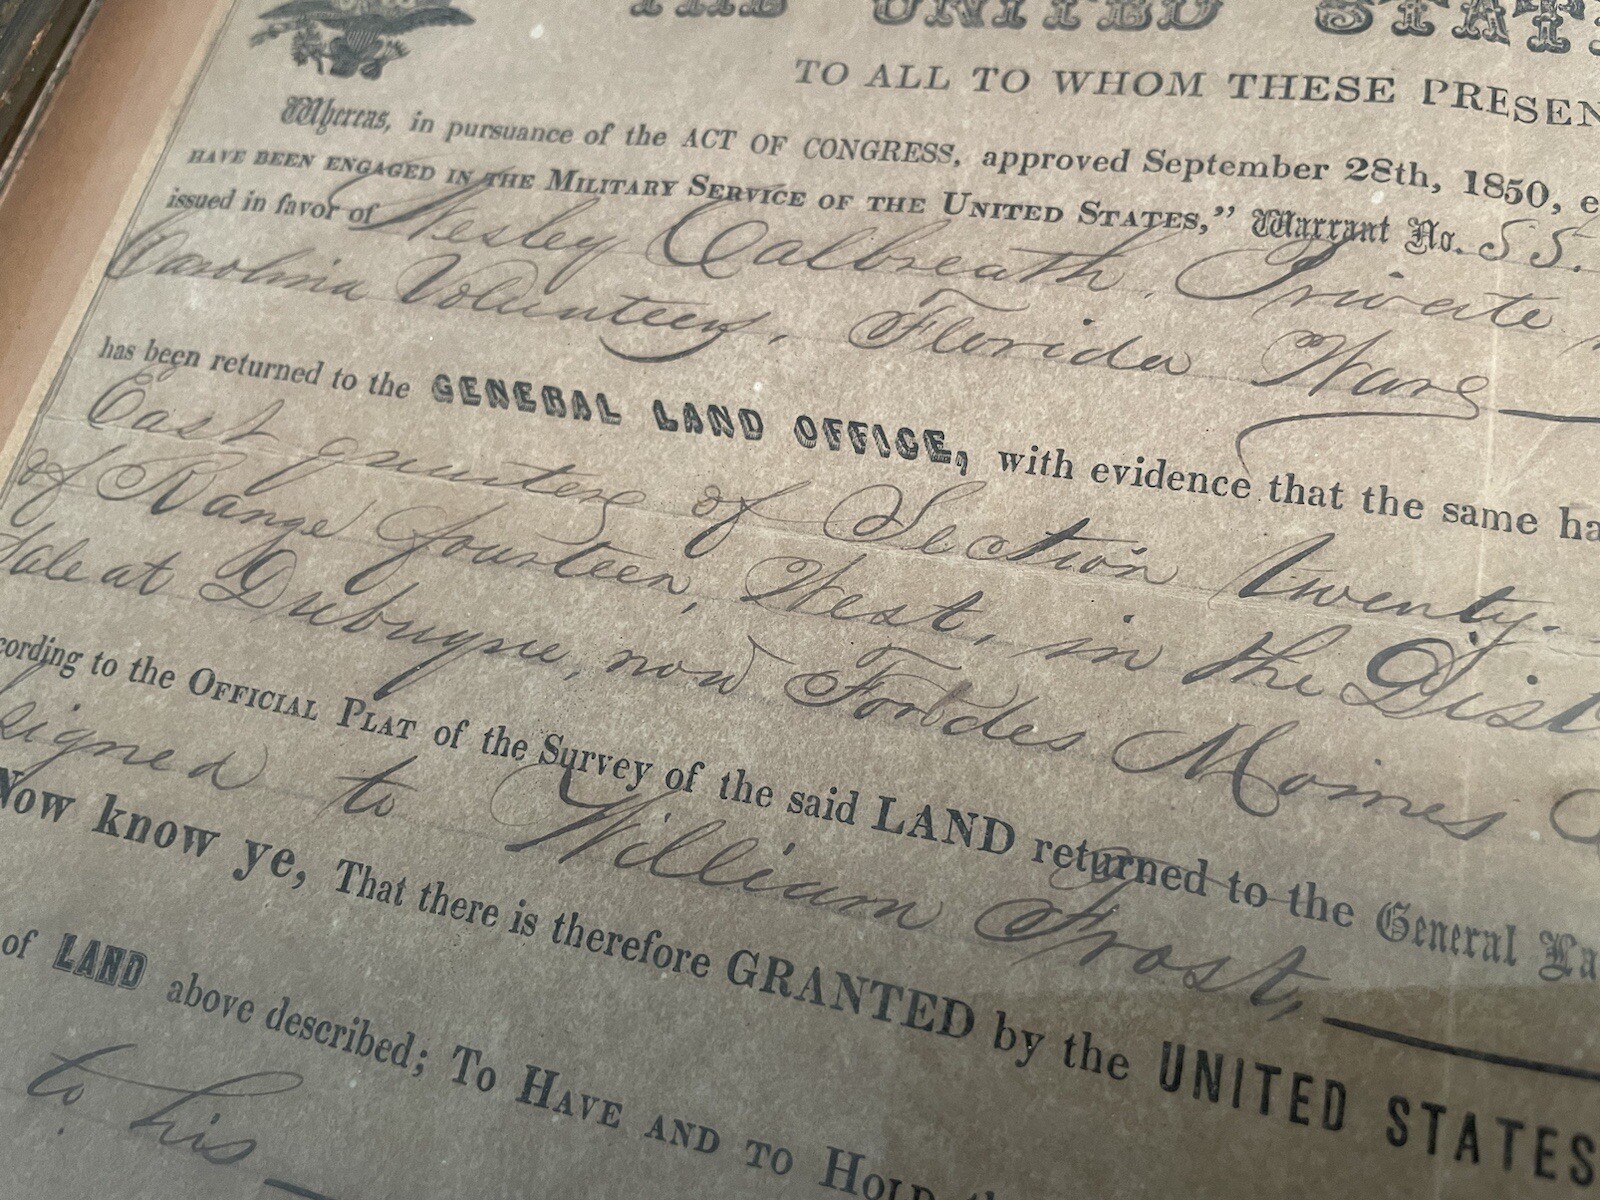 THE UNITED STAT
TO ALL TO WHOM THESE PRESEN
Whereas, in pursuance of the ACT OF CONGRESS, approved September 28th, 1850, e
HAVE BEEN ENGAGED IN THE MILITARY SERVICE OF THE UNITED STATES,” Warrant No. 55.
issued in favor of Wesley Calbreath, Private
Carolina Volunteers, Florida War
has been returned to the GENERAL LAND OFFICE, with evidence that the same ha
East quarter of Section twenty-
of Range fourteen, West, in the Dist
Sale at Dubuque, now Fort des Moines
cording to the OFFICIAL PLAT of the Survey of the said LAND returned to the General La
signed to William Frost,
Now know ye, That there is therefore GRANTED by the UNITED STATES
of LAND above described; TO HAVE AND TO HOLD th
to his